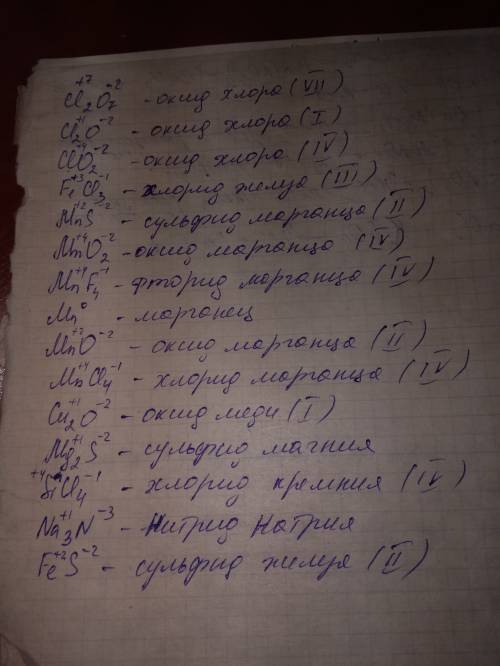 Cl₂⁺⁷O₇⁻² - оксид хлора (VII)
Cl₂⁺¹O⁻² - оксид хлора (I)
Cl⁺⁴O₂⁻² - оксид хлора (IV)
Fe⁺³Cl₃⁻¹ - хлорид железа (III)
Mn⁺²S⁻² - сульфид марганца (II)
Mn⁺⁴O₂⁻² - оксид марганца (IV)
Mn⁺⁴F₄⁻¹ - фторид марганца (IV)
Mn⁰ - марганец
Mn⁺²O⁻² - оксид марганца (II)
Mn⁺⁴Cl₄⁻¹ - хлорид марганца (IV)
Cu₂⁺¹O⁻² - оксид меди (I)
Mg₂⁺¹S⁻² - сульфид магния
⁺⁴SiCl₄⁻¹ - хлорид кремния (IV)
Na₃⁺¹N⁻³ - Нитрид Натрия
Fe⁺²S⁻² - сульфид железа (II)